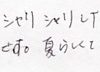 シャリ シャリ して
ます。夏らしくて